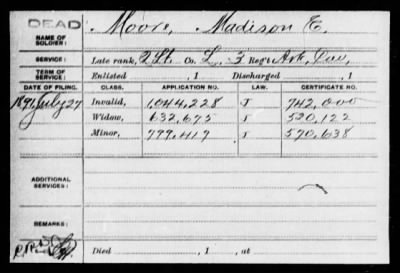 DEAD
NAME OF SOLDIER: Moore, Madison E.
SERVICE: Late rank, 2 Lt. Co. L, 3 Reg't Ark. Cav,
TERM OF SERVICE: Enlisted , 1 Discharged , 1
DATE OF FILING. CLASS. APPLICATION NO. LAW. CERTIFICATE NO.
1891, July 27 Invalid, 1.044,228 742,000
Widow, 632,675 520,122
Minor, 799,419 570,638
ADDITIONAL SERVICES:
REMARKS:
Died , 1 , at